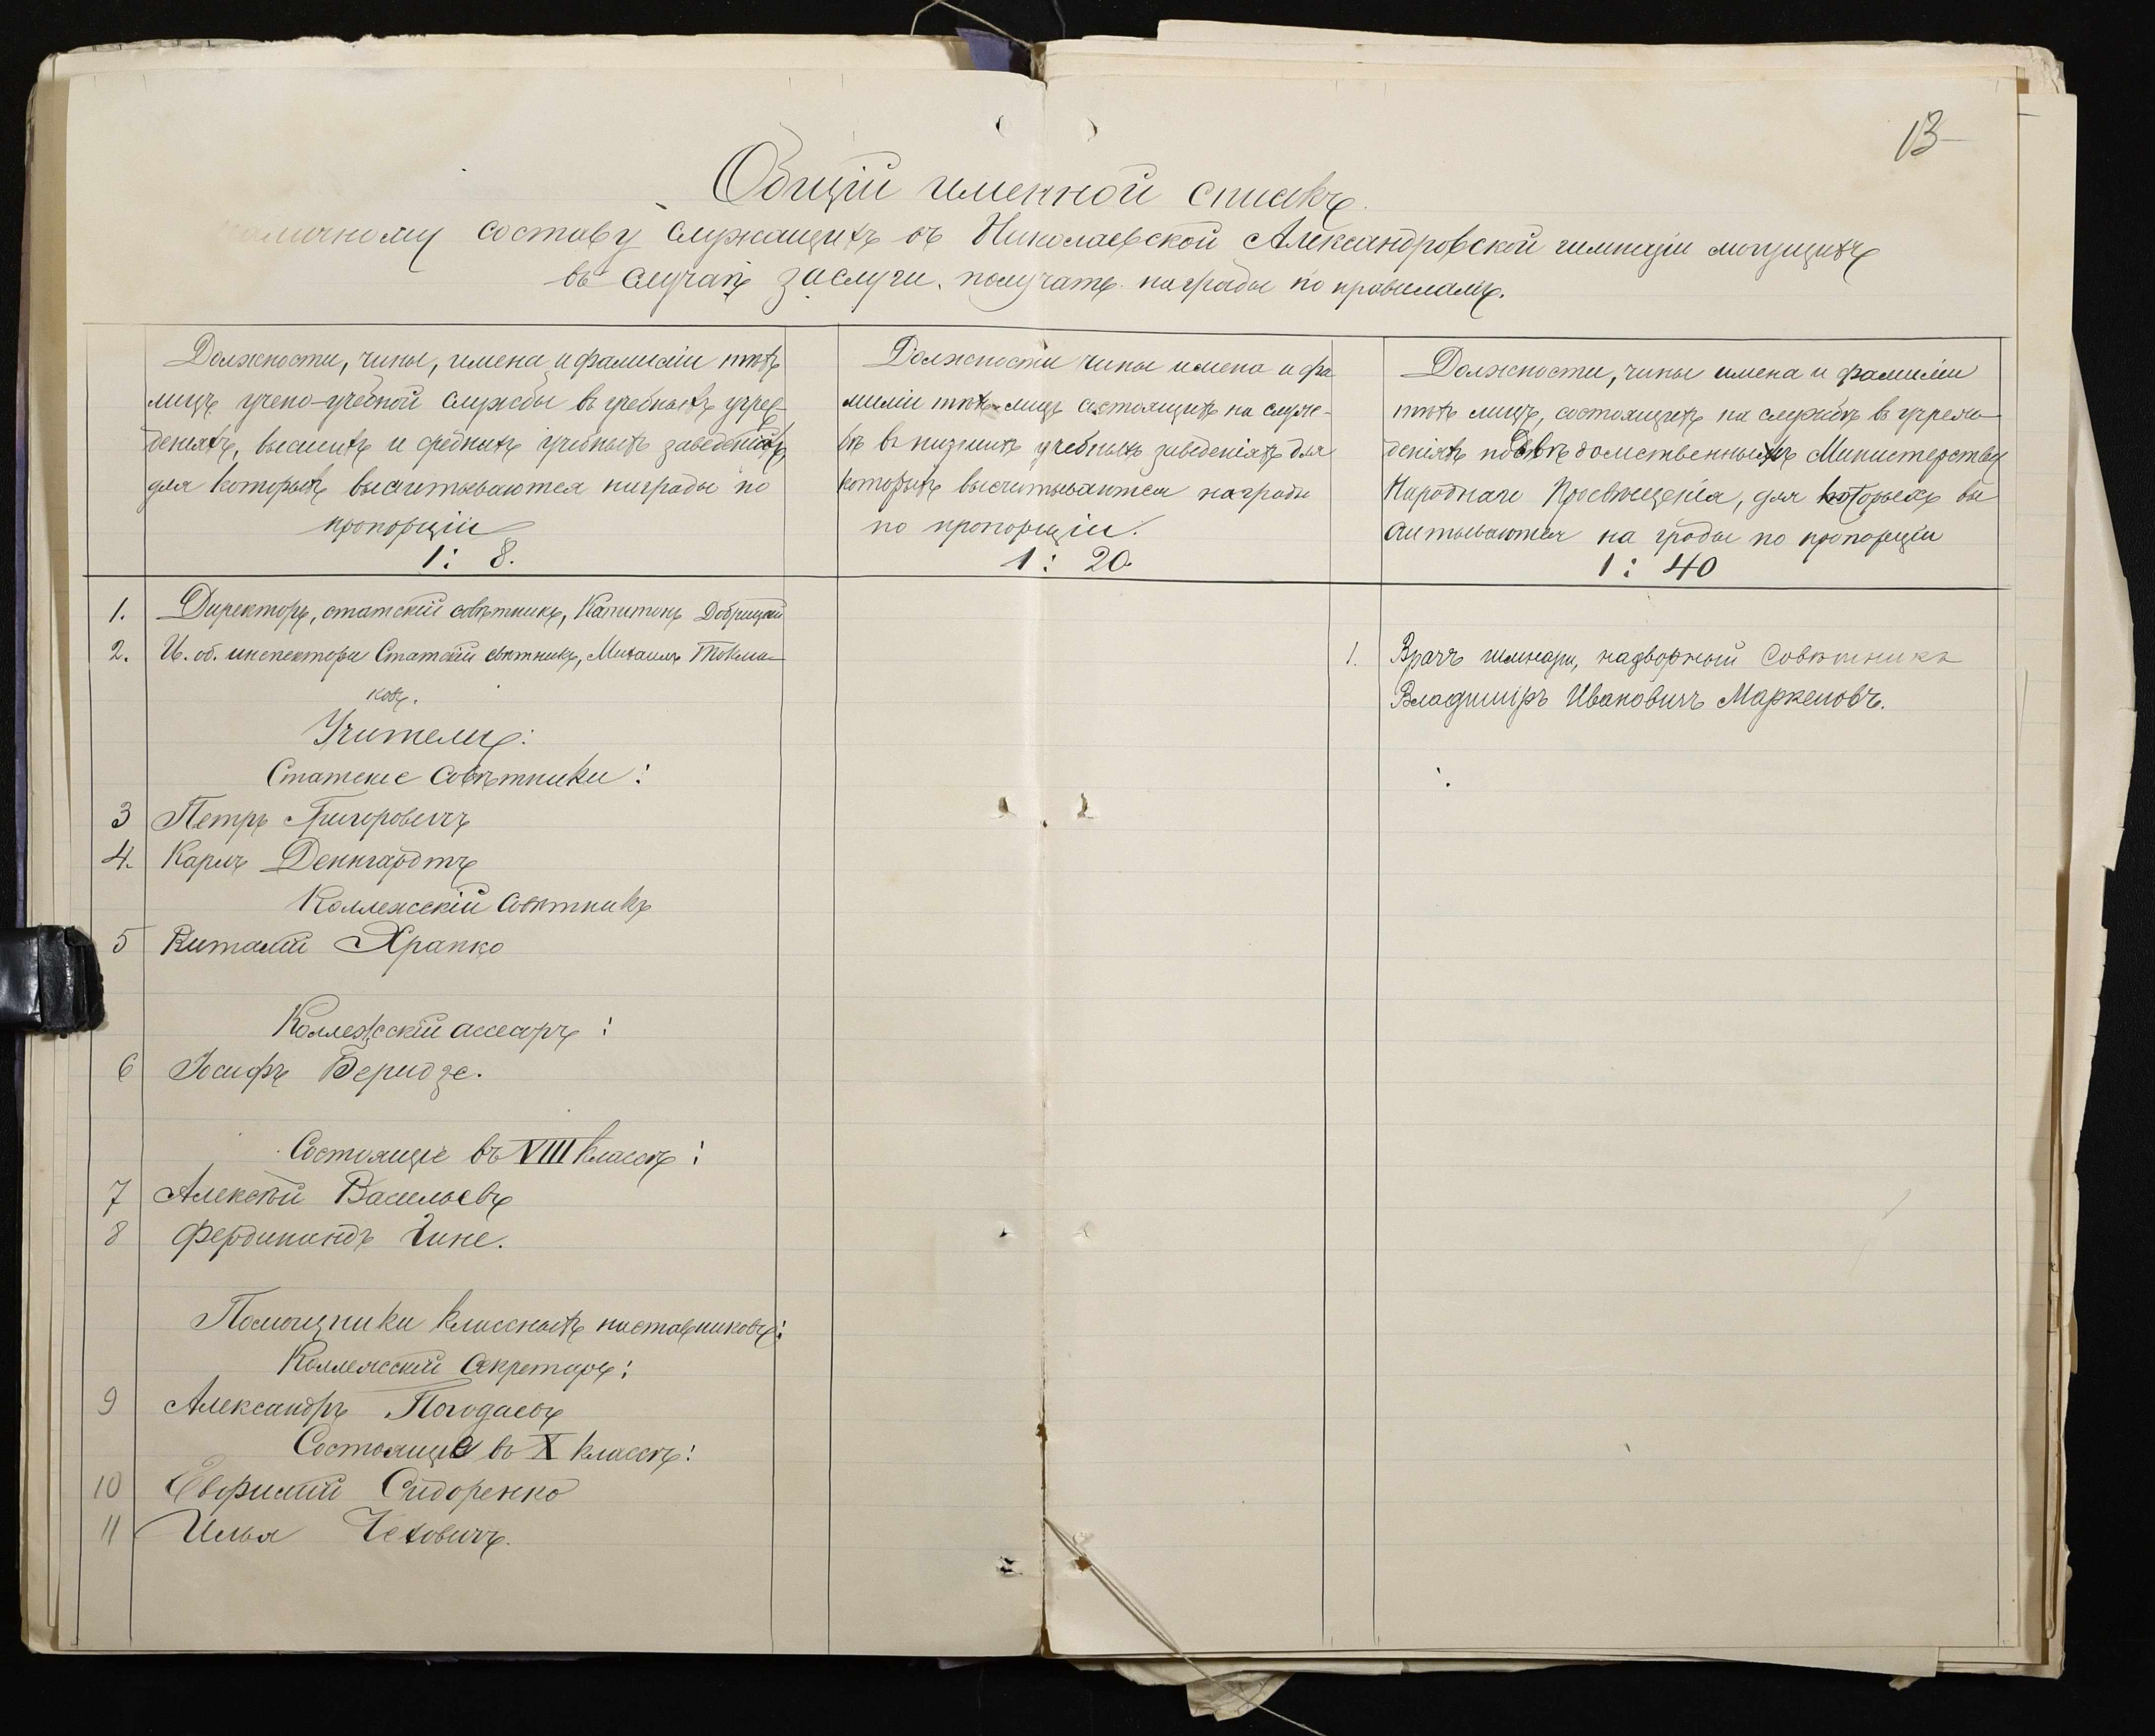 13
Общій именной списокъ
личному составу служащихъ въ Николаевской Александровской гимназіи могущихъ
въ случаѣ заслуги получать награды по правиламъ.
Должности, чины, имена и фамиліи тѣхъ
лицъ учено-учебной службы въ учебныхъ учреж-
деніяхъ, высшихъ и среднихъ учебныхъ заведеніяхъ,
для которыхъ высчитываются награды по
пропорціи
1: 8.
Должности чины имена и фа
миліи тѣхъ лицъ состоящихъ на служ-
бѣ въ низшихъ учебныхъ заведеніяхъ для
которыхъ высчитываются награды
по пропорціи.
1: 20.
Должности, чины имена и фамиліи
тѣхъ лицъ, состоящихъ на службѣ въ учреж-
деніяхъ подвѣдомственныхъ Министерству
Народнаго Просвѣщенія, для которыхъ вы
считываются награды по пропорціи
1: 40
1. Директоръ, статскій совѣтникъ, Капитонъ Добрицкій
2. И. об. инспектора Статскій свѣтникъ, Михаилъ Токма-
ковъ.
Учители:
Статскіе Совѣтники:
3 Петръ Григоровичъ
4. Карлъ Денгардтъ
Коллежскій совѣтникъ
5 Виталій Храпко
Коллежскій ассесоръ:
6 Іосифъ Беридзе.
Состоящіе въ VIII классѣ:
7 Алексѣй Васильевъ
8 Фердинандъ Гине.
Помощники классныхъ наставниковъ:
Коллежскій секретарь:
9 Александръ Погодаевъ
Состоящіе въ X классѣ:
10 Евфимій Сидоренко
11 Илья Чеховичъ.
1. Врачъ гимназіи, надворный Совѣтникъ
Владиміръ Ивановичъ Маркеловъ.